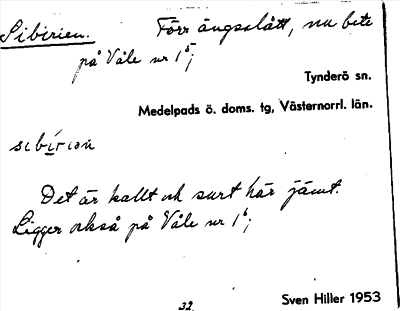 Sibirien. Förr ängsslått, nu bete
på Våle nr 1⁵;
Tynderö sn.
Medelpads ö. doms. tg, Västernorrl. län.
sıbírıon
Det är kallt och surt här jämt.
Ligger också på Våle nr 1⁶;
32.
Sven Hiller 1953